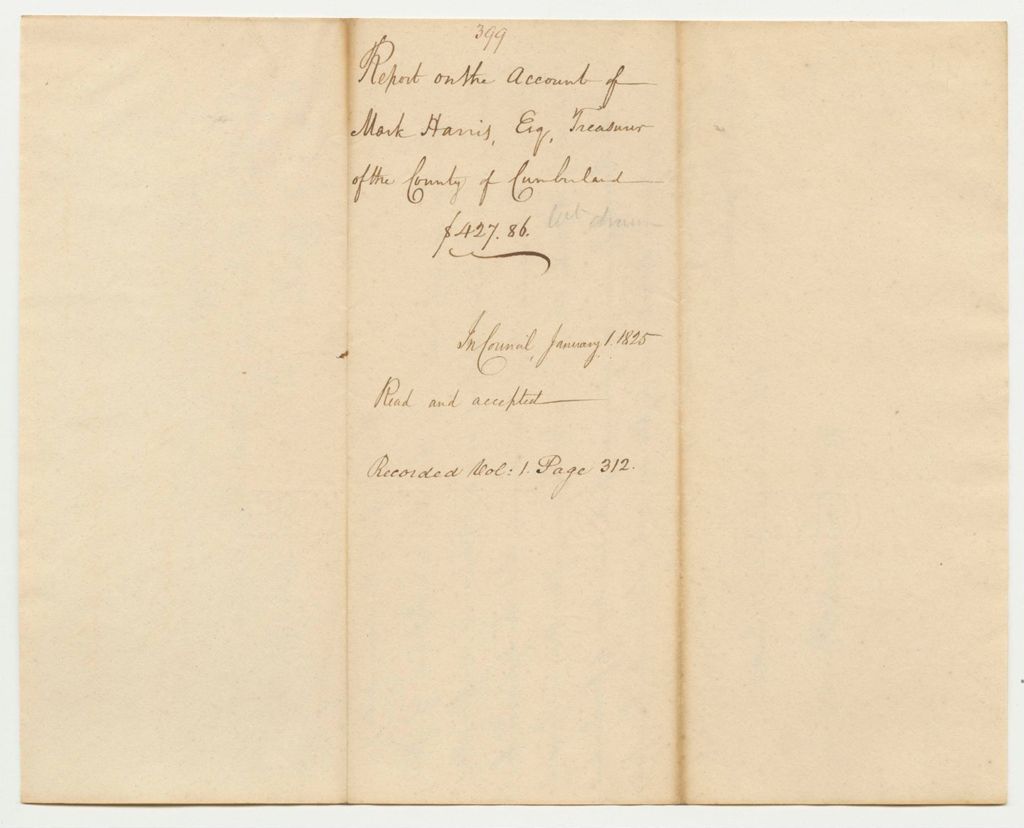 399
Report on the Account of
Mark Harris, Esq, Treasurer
of the County of Cumberland
$427.86.
drawn
In Council, January 1. 1825
Read and accepted
Recorded Vol: 1. Page 312.